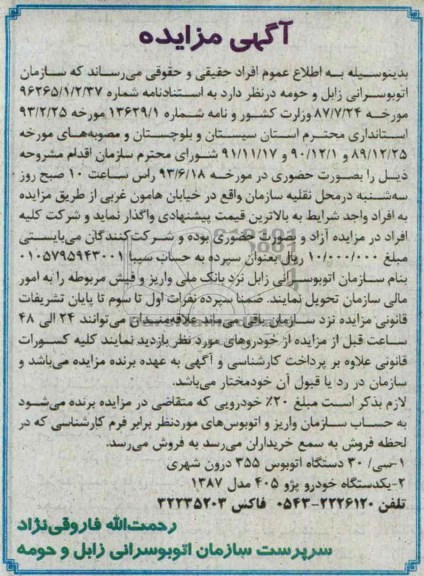 آگهی مزایده
بدینوسیله به اطلاع عموم افراد حقیقی و حقوقی می‌رساند که سازمان
اتوبوسرانی زابل و حومه درنظر دارد به استنادنامه شماره ۹۶۲۶۵/۱/۲/۳۷
مورخه ۸۷/۷/۲۴ وزارت کشور و نامه شماره ۱۳۶۲۹/۱ مورخ ۹۳/۲/۲۵
استانداری محترم استان سیستان و بلوچستان و مصوبه‌های مورخه
۸۹/۱۲/۲۵ و ۹۰/۱۲/۱ و ۹۱/۱۱/۱۷ شورای محترم سازمان اقدام مشروحه
ذیل را بصورت حضوری در مورخه ۹۳/۶/۱۸ راس ساعت ۱۰ صبح روز
سه‌شنبه درمحل نقلیه سازمان واقع در خیابان هامون غربی از طریق مزایده
به افراد واجد شرایط به بالاترین قیمت پیشنهادی واگذار نماید و شرکت کلیه
افراد در مزایده آزاد و بصورت حضوری بوده و شرکت‌کنندگان می‌بایستی
مبلغ ۱۰/۰۰۰/۰۰۰ ریال بعنوان سپرده به حساب سیبا ۰۱۰۵۷۹۵۹۴۳۰۰۱
بنام سازمان اتوبوسرانی زابل نزد بانک ملی واریز و فیش مربوطه را به امور
مالی سازمان تحویل نمایند. ضمنا سپرده نفرات اول تا سوم تا پایان تشریفات
قانونی مزایده نزد سازمان باقی می‌ماند علاقه‌مندان می‌توانند ۲۴ الی ۴۸
ساعت قبل از مزایده از خودروهای مورد نظر بازدید نمایند کلیه کسورات
قانونی علاوه بر پرداخت کارشناسی و آگهی به عهده برنده مزایده می‌باشد و
سازمان در رد یا قبول آن خودمختار می‌باشد.
لازم بذکر است مبلغ ۲۰٪ خودرویی که متقاضی در مزایده برنده می‌شود
به حساب سازمان واریز و اتوبوس‌های موردنظر برابر فرم کارشناسی که در
لحظه فروش به سمع خریداران می‌رسد به فروش می‌رسد.
۱-سی/ ۳۰ دستگاه اتوبوس ۳۵۵ درون شهری
۲-یکدستگاه خودرو پژو ۴۰۵ مدل ۱۳۸۷
تلفن ۲۲۲۶۱۲۰-۰۵۴۳ فاکس ۳۲۲۳۵۲۰۳
رحمت‌الله فاروقی‌نژاد
سرپرست سازمان اتوبوسرانی زابل و حومه